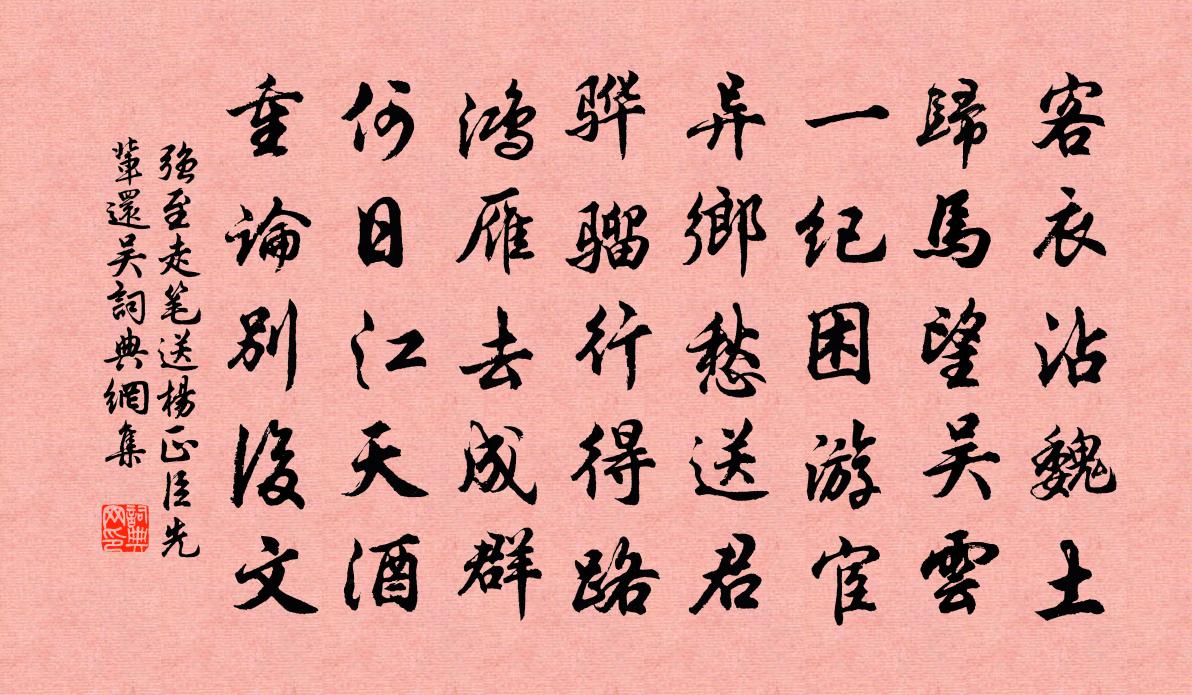 客衣沾魏土
歸馬望吴雲
一纪困游宦
异鄉愁送君
骅骝行得路
鸿雁去成群
何日江天酒
重論别後文
強至走笔送楊正臣先
輩還吴詞典網集
詞典
网印